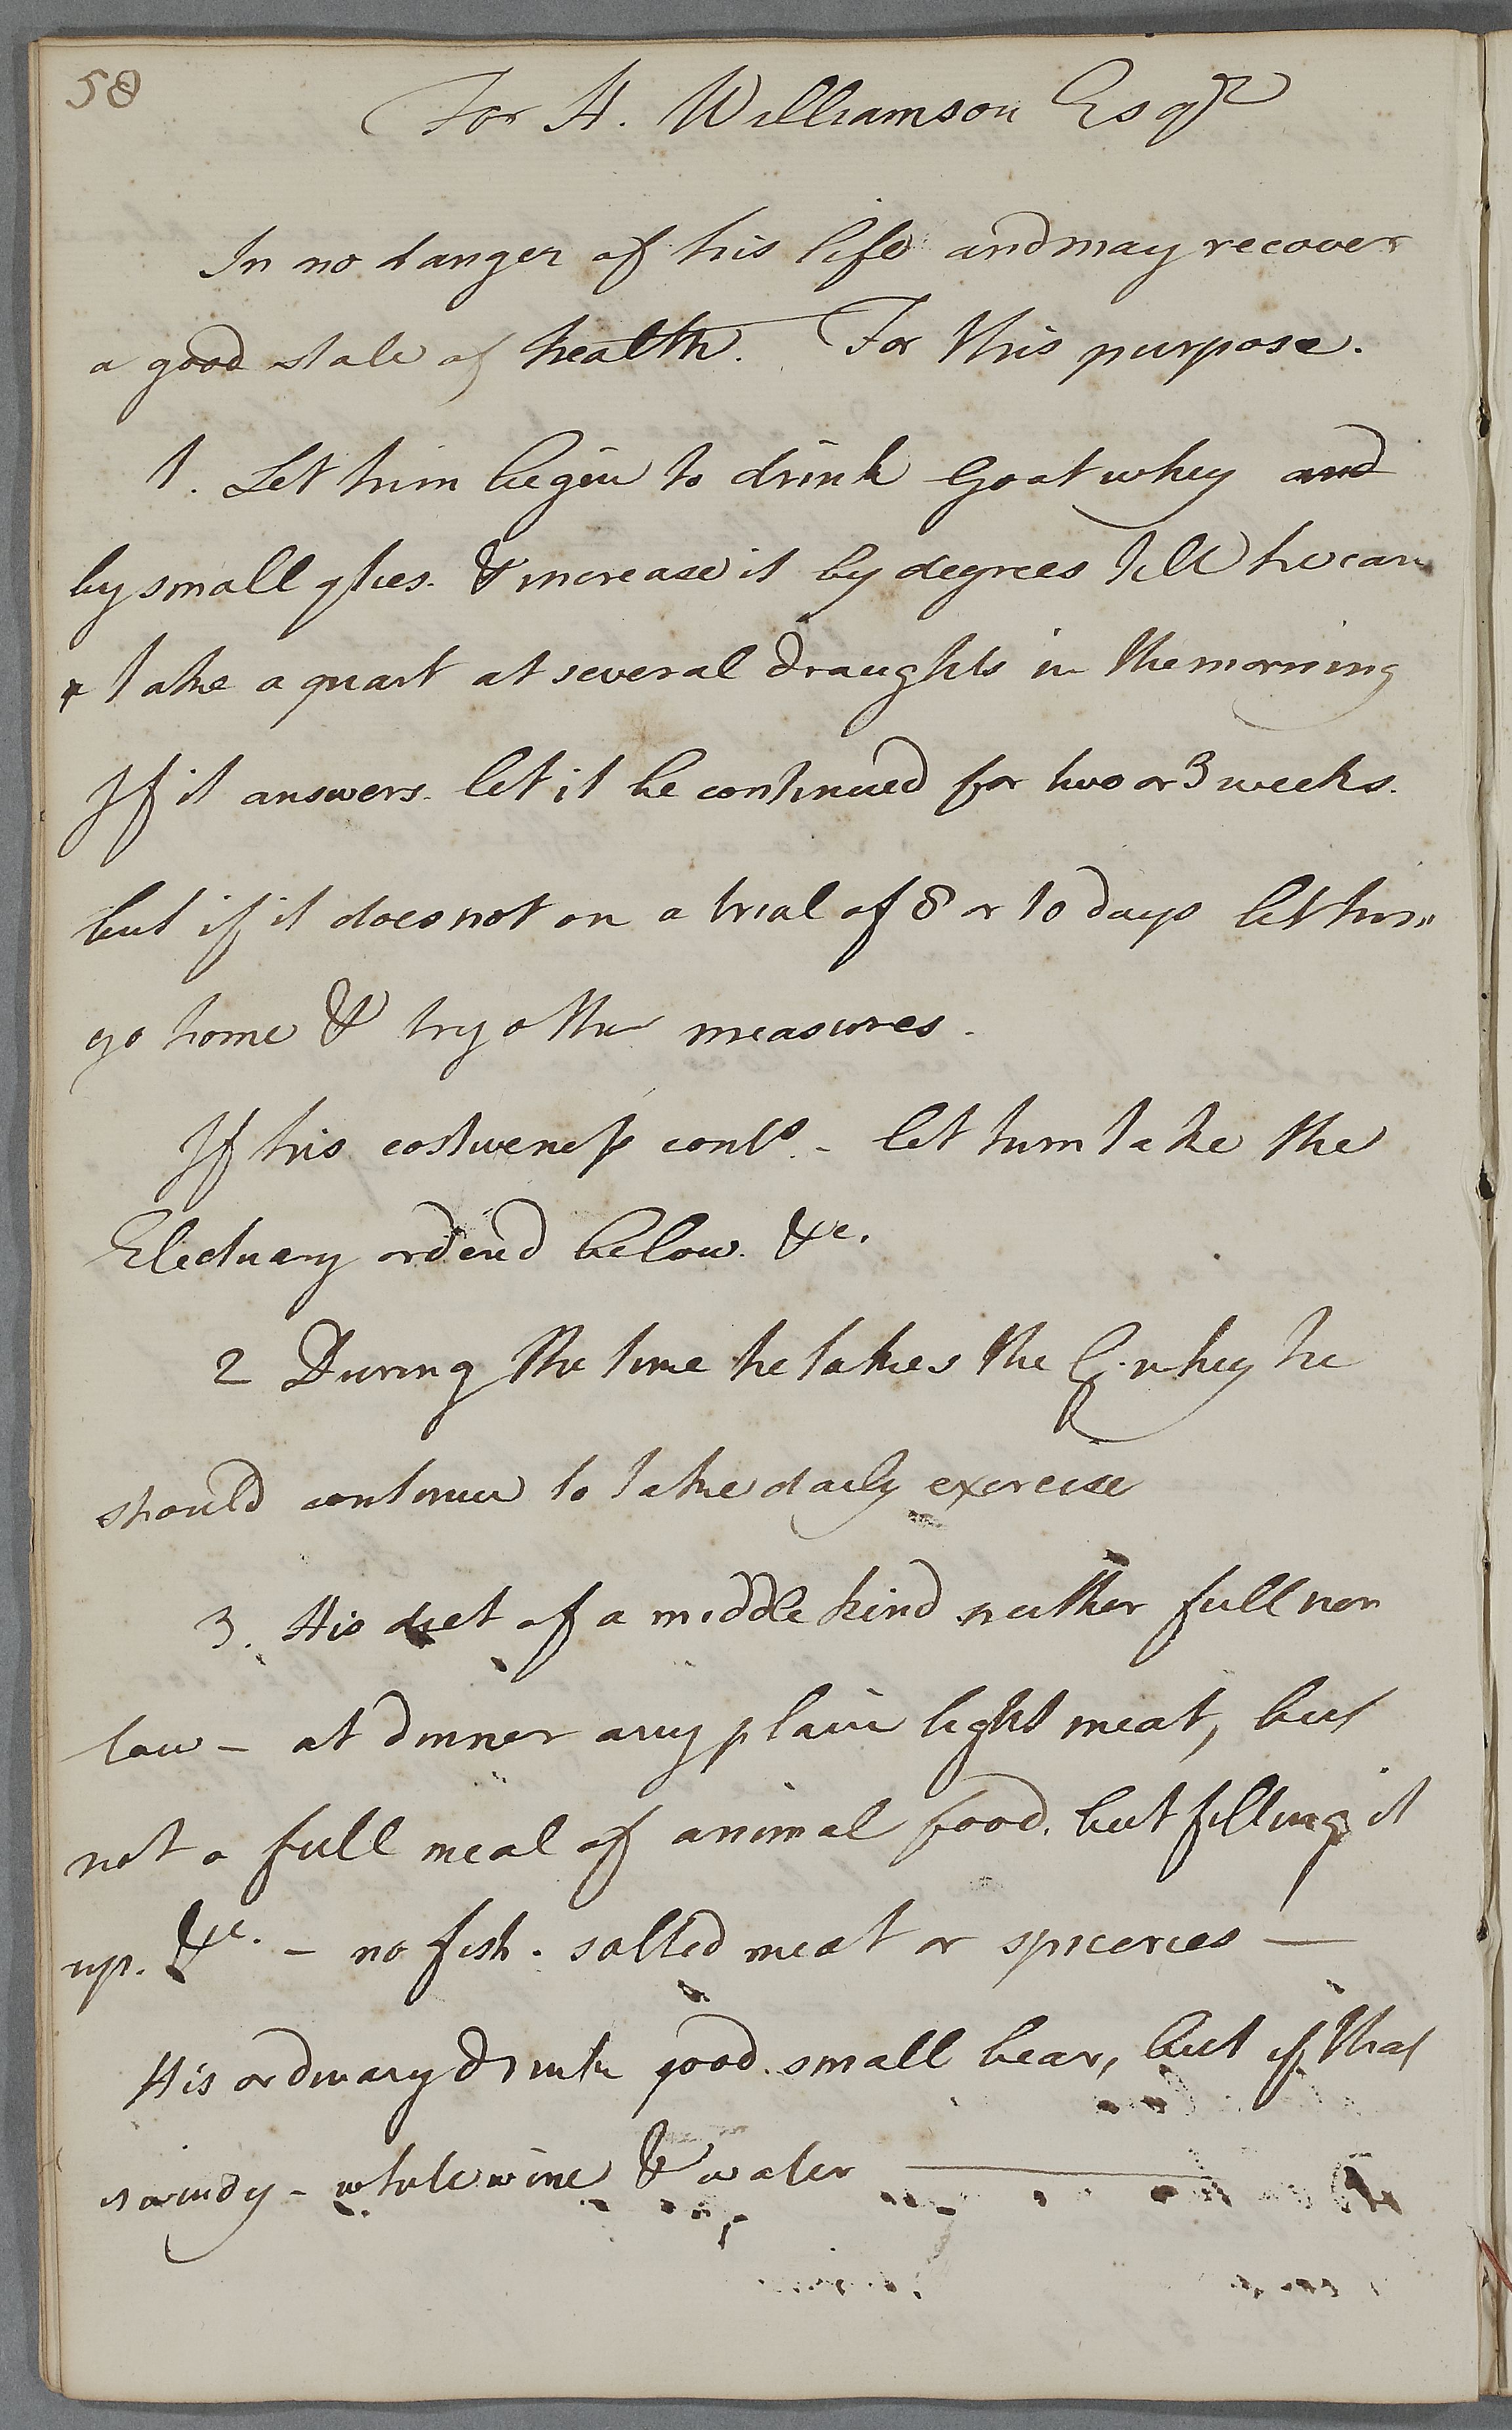 58
For A. Williamson Esqr
In no danger of his life and may recover
a good state of health. For this purpose.
1. Let him begin to drink Goat whey and
by small qties. & increase it by degrees till he can
take a quart at several draughts in the morning
If it answers. let it be continued for two or 3 weeks.
but if it does not on a trial of 8 or 10 days let him
go home & try other measures.
If his costiveness conts. - let him take the
Electuary orderd below. &c.
2 During the time he takes the G. whey he
should continue to take daily exercise
3. His diet of a middle kind neither full nor
low - at dinner any plain light meat, but
not a full meal of animal food. but filling it
up. &c. - no fish. salted meat or spiceries —
His ordinary drink good. small bear, but if that
is windy - white wine & water —